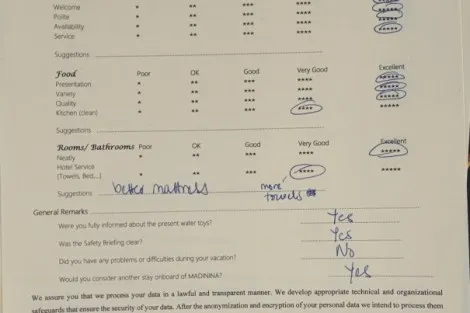 Welcome * ** *** **** *****
Polite * ** *** **** *****
Availability * ** *** **** *****
Service * ** *** **** *****
Suggestions
Food Poor OK Good Very Good Excellent
Presentation * ** *** **** *****
Variety * ** *** **** *****
Quality * ** *** **** *****
Kitchen (clean) * ** *** **** *****
Suggestions
Rooms/ Bathrooms Poor OK Good Very Good Excellent
Neatly * ** *** **** *****
Hotel Service
(Towels, Bed,...) * ** *** **** *****
Suggestions better mattress more towels
General Remarks
Were you fully informed about the present water toys? Yes
Was the Safety Briefing clear? Yes
Did you have any problems or difficulties during your vacation? No
Would you consider another stay onboard of MADININA? Yes
We assure you that we process your data in a lawful and transparent manner. We develop appropriate technical and organizational
safeguards that ensure the security of your data. After the anonymization and encryption of your personal data we intend to process them